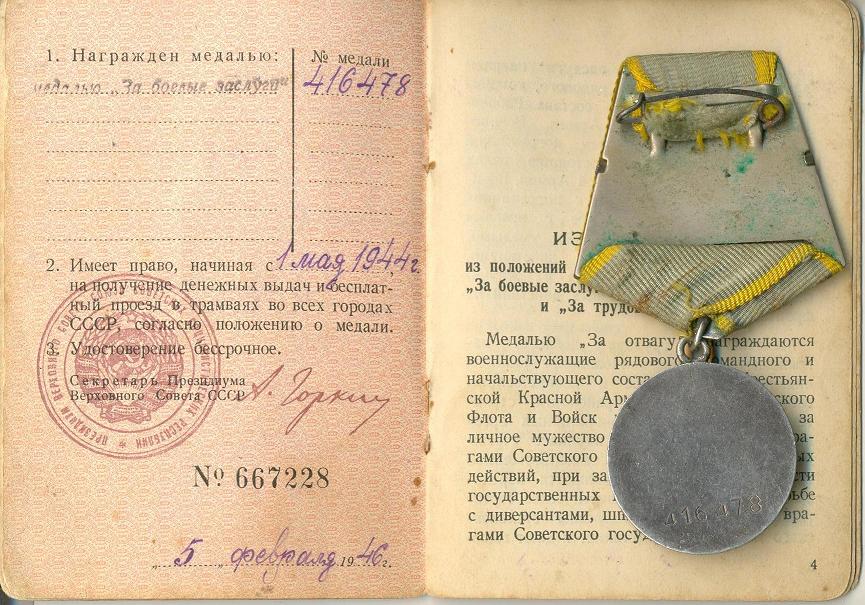 1. Награжден медалью:
№ медали
медалью „За боевые заслуги"
416478
2. Имеет право, начиная с 1 мая 1944 г.
на получение денежных выдач и бесплат-
ный проезд в трамваях во всех городах
СССР, согласно положению о медали.
3. Удостоверение бессрочное.
Секретарь Президиума
Верховного Совета СССР
А. Горкин
№ 667228
„5" февраля 1946 г.
ИЗ
из положений
„За боевые заслу
и „За трудо
Медалью „За отвагу награждаются
военнослужащие рядового командного и
начальствующего соста естьян-
ской Красной Арм ского
Флота и Войск за
личное мужество ра-
гами Советского ых
действий, при за сти
государственных рьбе
с диверсантами, шп вра-
гами Советского госуд
416478
4